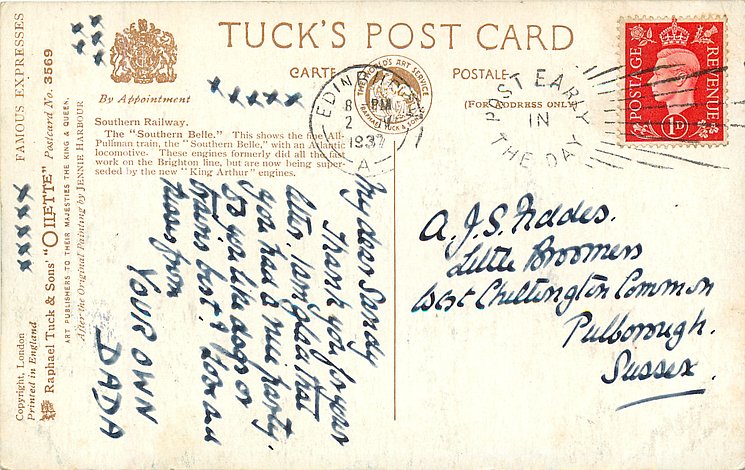 TUCK'S POST CARD
CARTE
POSTALE
(FOR ADDRESS ONLY)
By Appointment
Southern Railway.
The "Southern Belle." This shows the fine All-
Pullman train, the "Southern Belle," with an Atlantic
locomotive. These engines formerly did all the fast
work on the Brighton line, but are now being super-
seded by the new "King Arthur" engines.
THE WORLD'S ART SERVICE
RAPHAEL TUCK & SONS
EDINBURGH
8 PM
2
1937
A
POST EARLY
IN
THE DAY
POSTAGE
REVENUE
1D
FAMOUS EXPRESSES
Raphael Tuck & Sons' "OILETTE" Postcard No. 3569
ART PUBLISHERS TO THEIR MAJESTIES THE KING & QUEEN.
After the Original Painting by JENNIE HARBOUR
Copyright, London
Printed in England
xxx
xxx
xxxxx
xxxxx
My dear Sandy
Thank you for your
letter. I am glad that
you had a nice party.
Do you like dogs or
trains best? Love and
kisses from
YOUR OWN
DADA
A. J. S.
Little Broomers
West Chiltington Common
Pulborough.
Sussex.